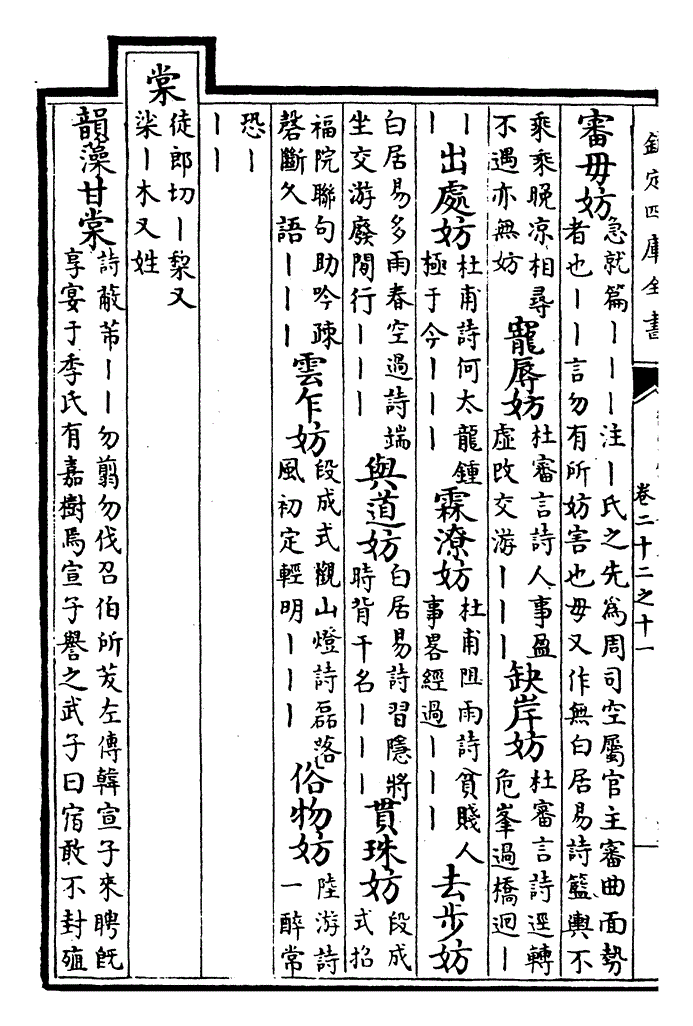 欽定四庫全書
卷二十二之十一
審毋妨急就篇｜｜｜注｜氏之先為周司空屬官主審曲面勢
者也｜｜言勿有所妨害也毋又作無白居易詩籃輿不
乘乘晚凉相尋
不遇亦無妨
寵辱妨杜審言詩人事盈
虛改交游｜｜｜
缺岸妨杜審言詩逕轉
危峯過橋迴｜
｜
｜
出處妨杜甫詩何太龍鍾
極于今｜｜｜
霖潦妨杜甫阻雨詩貧賤人
事畧經過｜｜｜
去步妨
白居易多雨春空過詩端
坐交游廢閒行｜｜｜
與道妨白居易詩習隱將
時背干名｜｜｜
貫珠妨段成
式招
福院聯句助吟疎
磬斷久語｜｜｜
雲乍妨段成式觀山燈詩磊落
風初定輕明｜｜｜
俗物妨陸游詩
一醉常
恐｜
｜｜
棠徒郎切｜黎又
柒｜木又姓
韻藻甘棠詩蔽芾｜｜勿翦勿伐召伯所茇左傳韓宣子來聘既
享宴于季氏有嘉樹焉宣子譽之武子曰宿敢不封殖